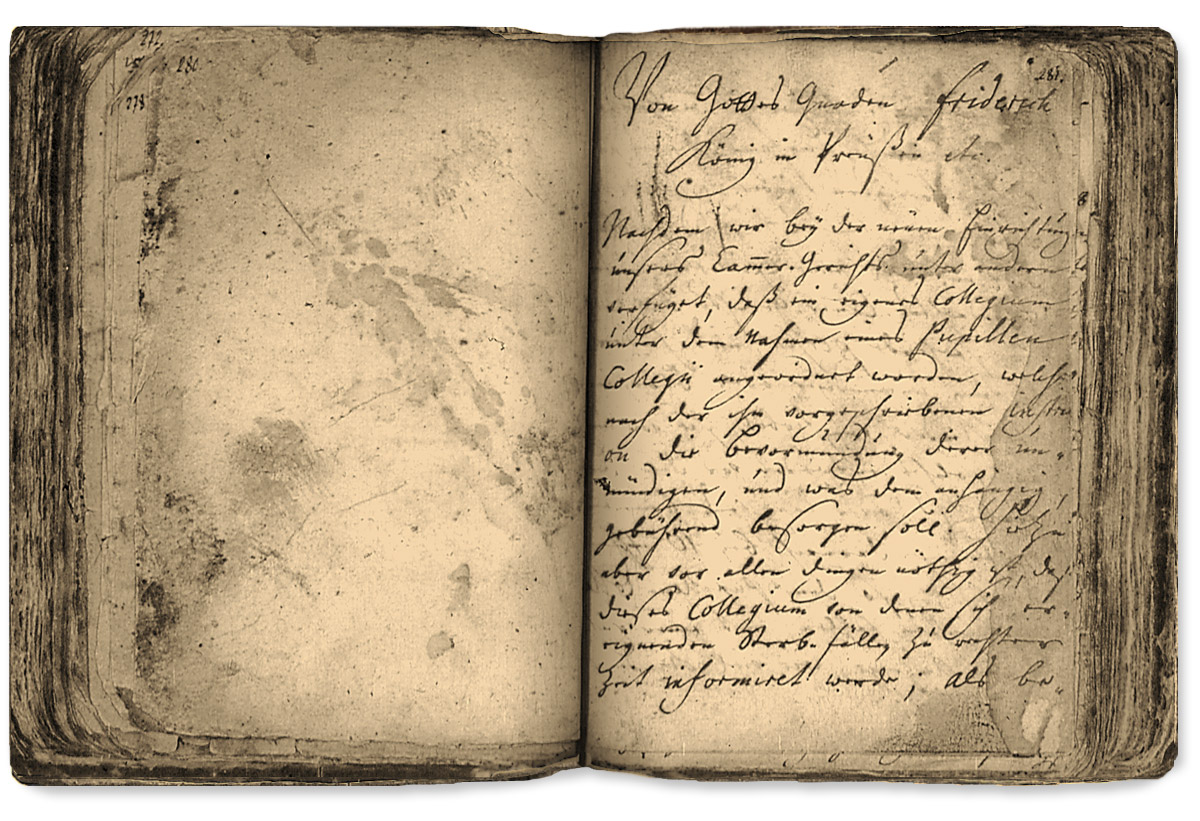 272
280
278
281.
Von Gottes Gnaden Friderich
König in Preußen etc.
Nachdem wir bey der neüen Einrichtüng
ünsers Cammer-Gerichts ünter andern
verfüget, daß ein eigenes Collegium
ünter dem Nahmen eines Pupillen
Collegii angeordnet worden, welches
nach der ihm vorgeschriebenen
on die Bevormündüng derer ün-
mündigen, ünd was dem anhängig,
gebührend besorgen soll
aber vor allen Dingen nöthig ist, daß
dieses Collegium von denen sich er-
eignenden Sterb-fällen zü rechter
Zeit informiret werde; als be-